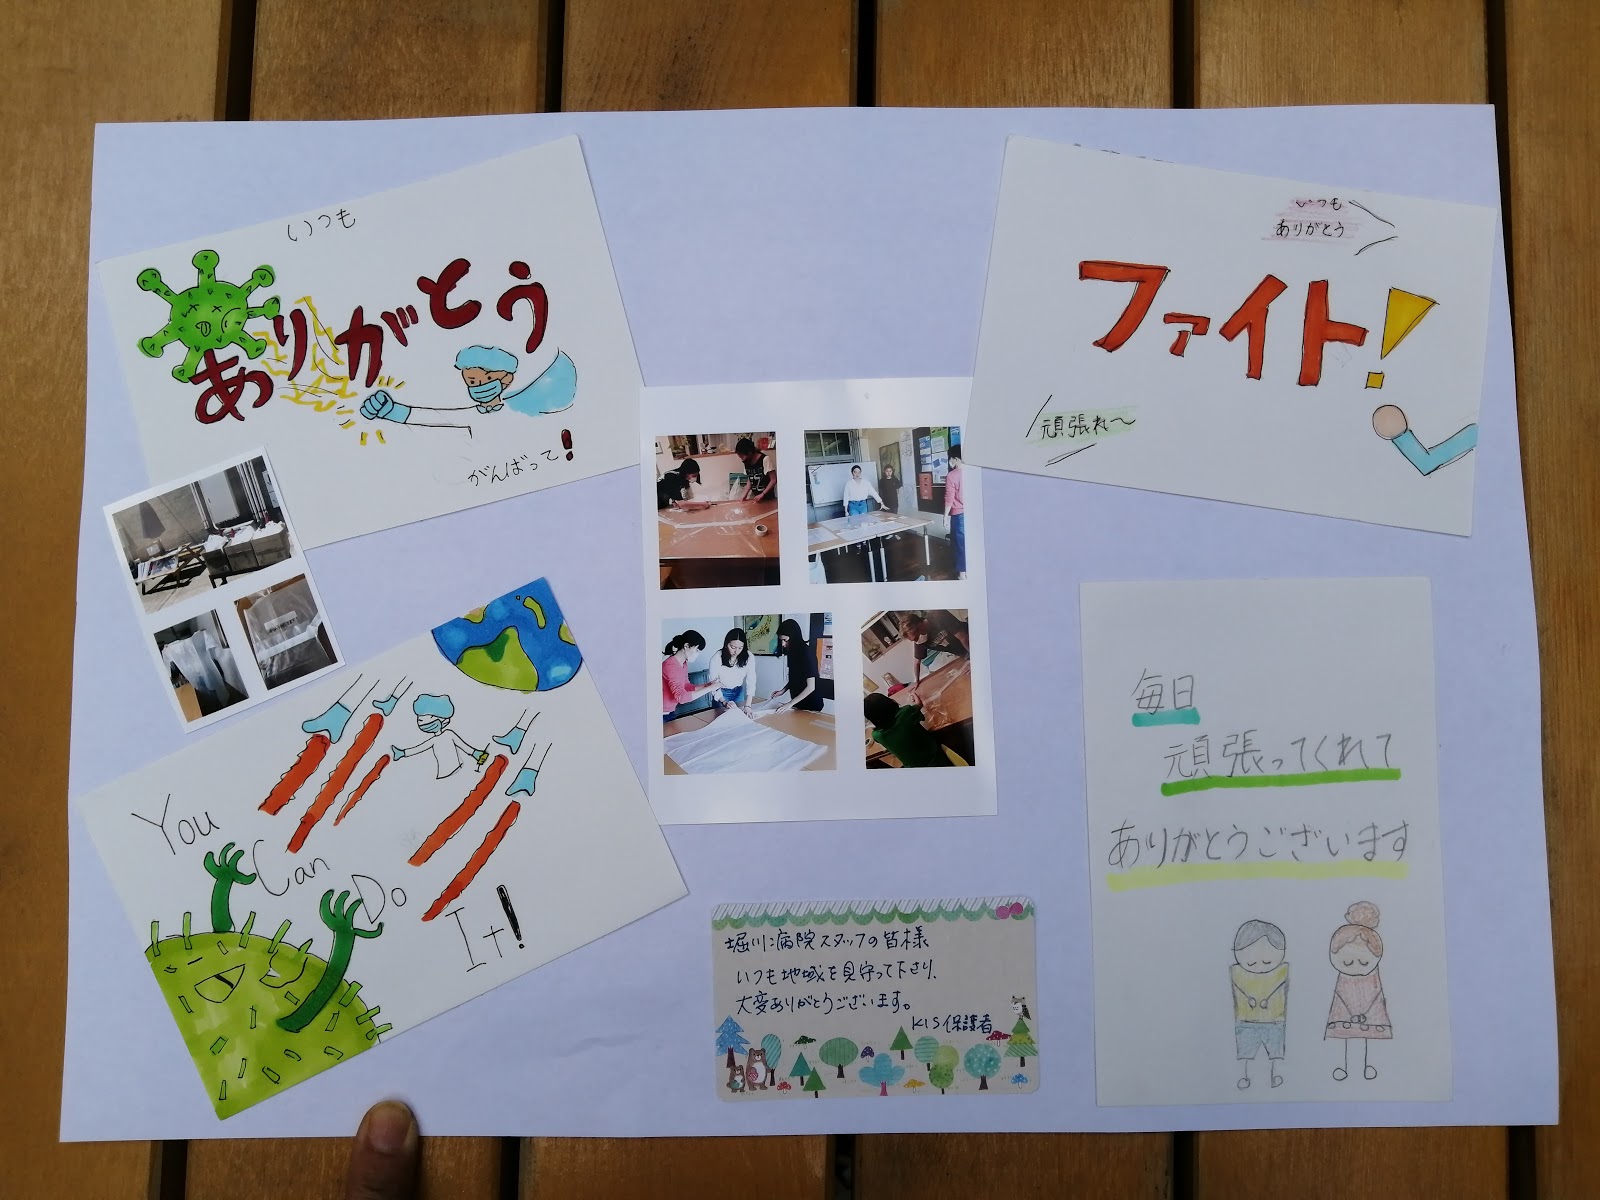 いつも
ありがとう
がんばって!
いつも
ありがとう
ファイト!
頑張れ〜
You
Can
Do
It!
毎日
頑張ってくれて
ありがとうございます
堀川病院スタッフの皆様
いつも地域を見守って下さり、
大変ありがとうございます。
KIS保護者